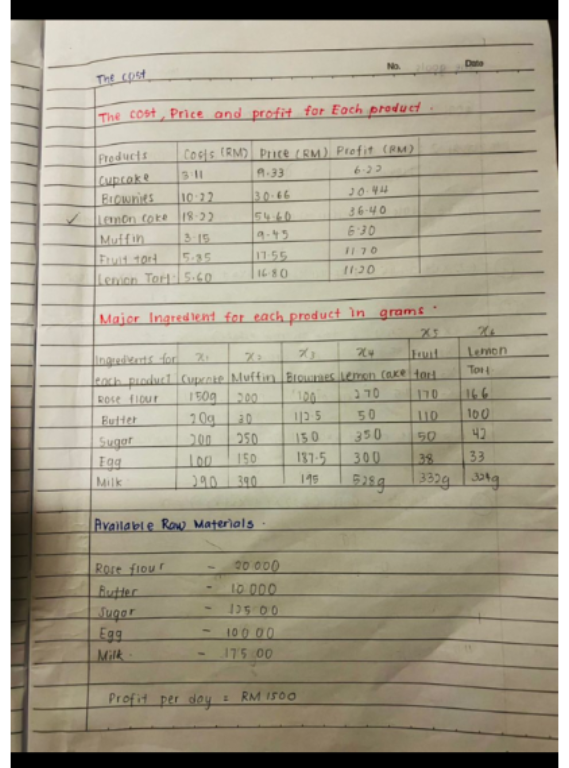 No. Date
The cost
The cost, Price and profit for Each product.
Products Costs (RM) Price (RM) Profit (RM)
Cupcake 3.11 9.33 6.22
Brownies 10.22 30.66 20.44
✓ Lemon cake 18.22 54.60 36.40
Muffin 3.15 9.45 6.30
Fruit tart 5.85 17.55 11.70
Lemon Tart 5.60 16.80 11.20
Major Ingredient for each product in grams.
x5 x6
Ingredients for x1 x2 x3 x4 Fruit Lemon
each product Cupcake Muffin Brownies Lemon cake tart Tart
Rose flour 150g 200 100 270 170 166
Butter 20g 30 112.5 50 110 100
Sugar 200 250 150 350 50 42
Egg 100 150 187.5 300 38 33
Milk 290 390 195 528g 332g 324g
Available Raw Materials.
Rose flour - 20 000
Butter - 10 000
Sugar - 125 00
Egg - 100 00
Milk - 175 00
Profit per day = RM 1500